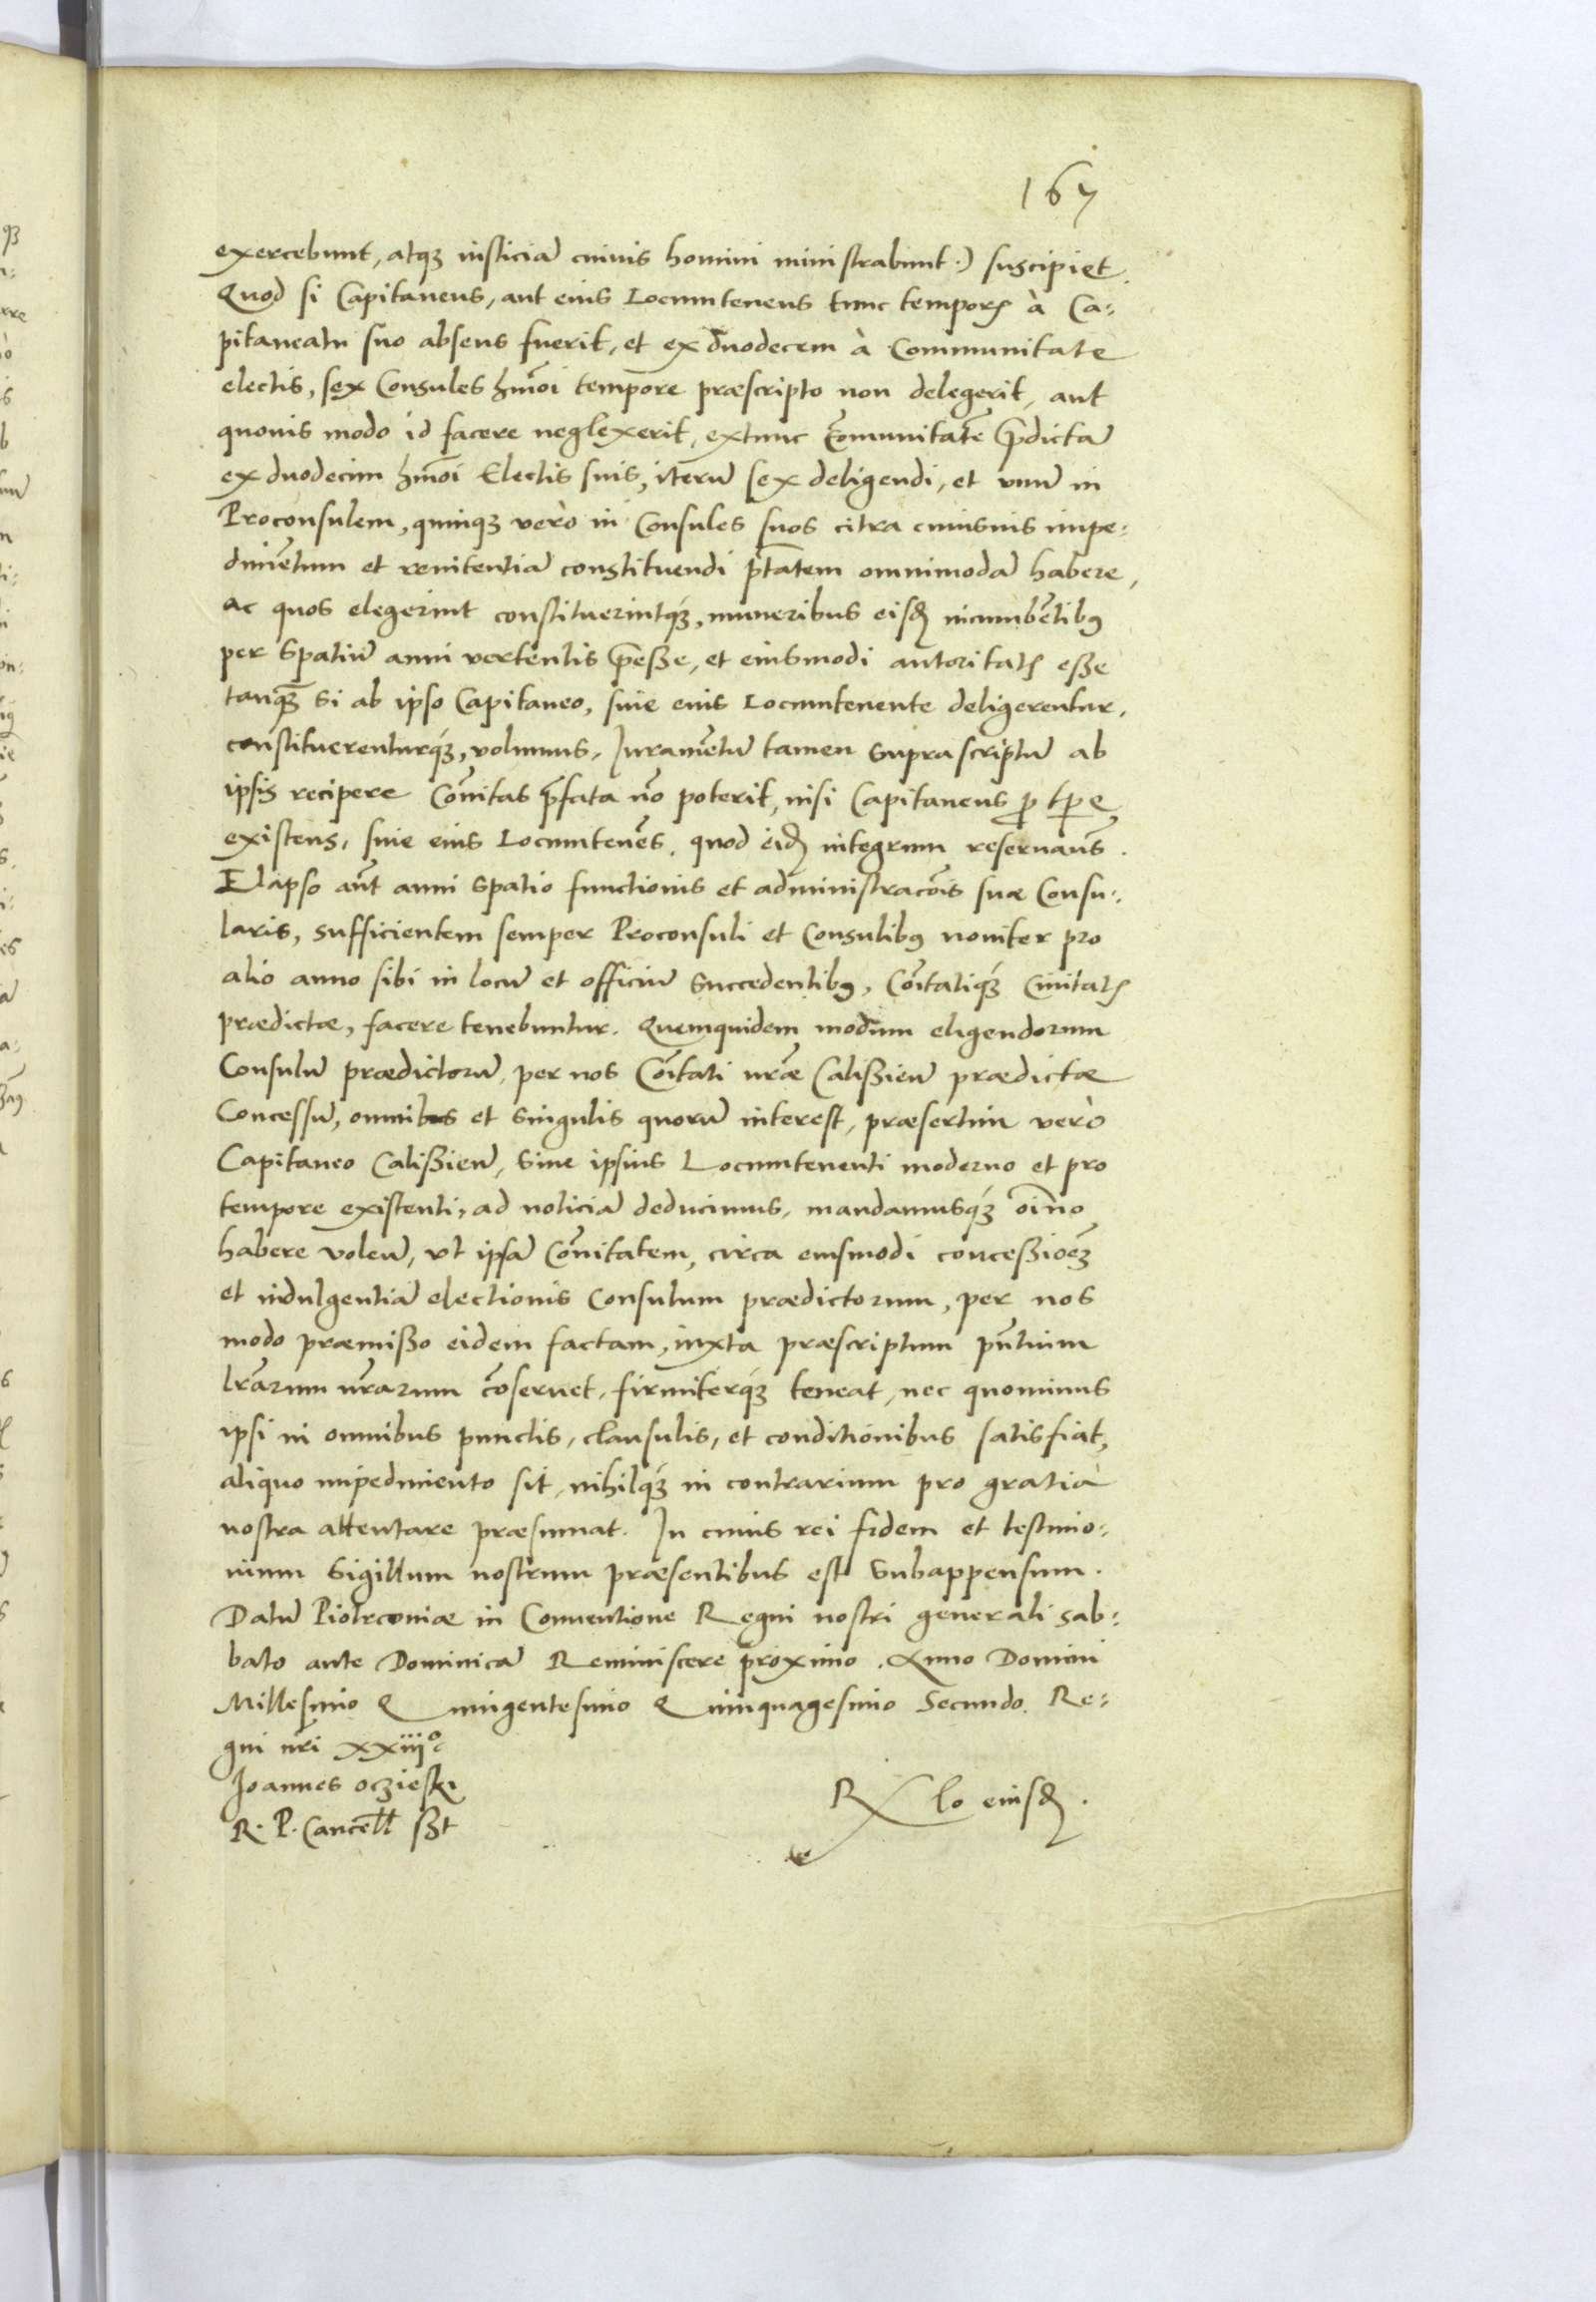 167
exercebunt, atqꝫ iusticiā cuiuis homini ministrabunt.) suscipiet.
Quod si Capitaneus, aut eius Locumtenens tunc temporꝭ à Ca:
pitaneatu suo absens fuerit, et ex duodecem à Communitate
electis, sex Consules hm̄oi tempore præscripto non delegerit, aut
quouis modo id facere neglexerit, extunc Com̄unitatē p̄dictā
ex duodecim hm̄oi Electis suis, iterū sex deligendi, et vnū in
Proconsulem, quinqꝫ verò in Consules suos citra cuiusuis impe:
dimētum et renitentiā constituendi ptātem omnimodā habere,
ac quos elegerint constituerintqꝫ, muneribus eisdꝫ incumbētibꝰ
per spatiū anni vertentis p̄eße, et eiusmodi autoritatꝭ eße
tanqꝫ si ab ipso Capitaneo, siue eius Locumtenente deligerentur,
constituerenturqꝫ, volumus. Iuramētū tamen suprascriptū ab
ipsis recipere Com̄itas p̄fata nō poterit, nisi Capitaneus p̱ tp̄e
existens, siue eius Locumtenēs. quod eidꝫ integrum reseruam̄s.
Elapso aūt anni spatio functionis et administracōis suæ Consu:
laris, sufficientem semper Proconsuli et Consulibꝰ nouiter pro
alio anno sibi in locū et officiū succedentibꝰ, Cōitatiqꝫ Ciuitatꝭ
prædictæ, facere tenebuntur. Quemquidem modum eligendorum
Consulū prædictorū, per nos Cōitati nr̄æ Calißień prædictæ
Concessū, omnibus et singulis quorū interest, præsertim verò
Capitaneo Calißień, siue ipsius Locumtenenti moderno et pro
tempore existenti, ad noticiā deducimus, mandamusqꝫ oīno
habere voleń, vt ipsā Com̄itatem, circa eiusmodi conceßioēꝫ
et indulgentiā electionis Consulum prædictorum, per nos
modo præmißo eidem factam, iuxta præscriptum pn̄tium
lr̄arum nr̄arum cōseruet, firmiterqꝫ teneat, nec quominus
ipsi in omnibus punctis, clausulis, et conditionibus satisfiat,
aliquo impedimento sit, nihilqꝫ in contrarium pro gratia
nostra attentare præsumat. In cuius rei fidem et testimo:
nium Sigillum nostrum præsentibus est subappensum.
Datū Piotrconiæ in Conuentione Regni nostri generali sab:
bato ante Dominicā Reminiscere proximo. Anno Domini
Millesimo Quingentesimo Quinquagesimo Secundo. Re:
gni nr̄i xxiijº
Joannes oczieski
R. P. Cancell̄ ßt
Rlo eiusdꝫ.